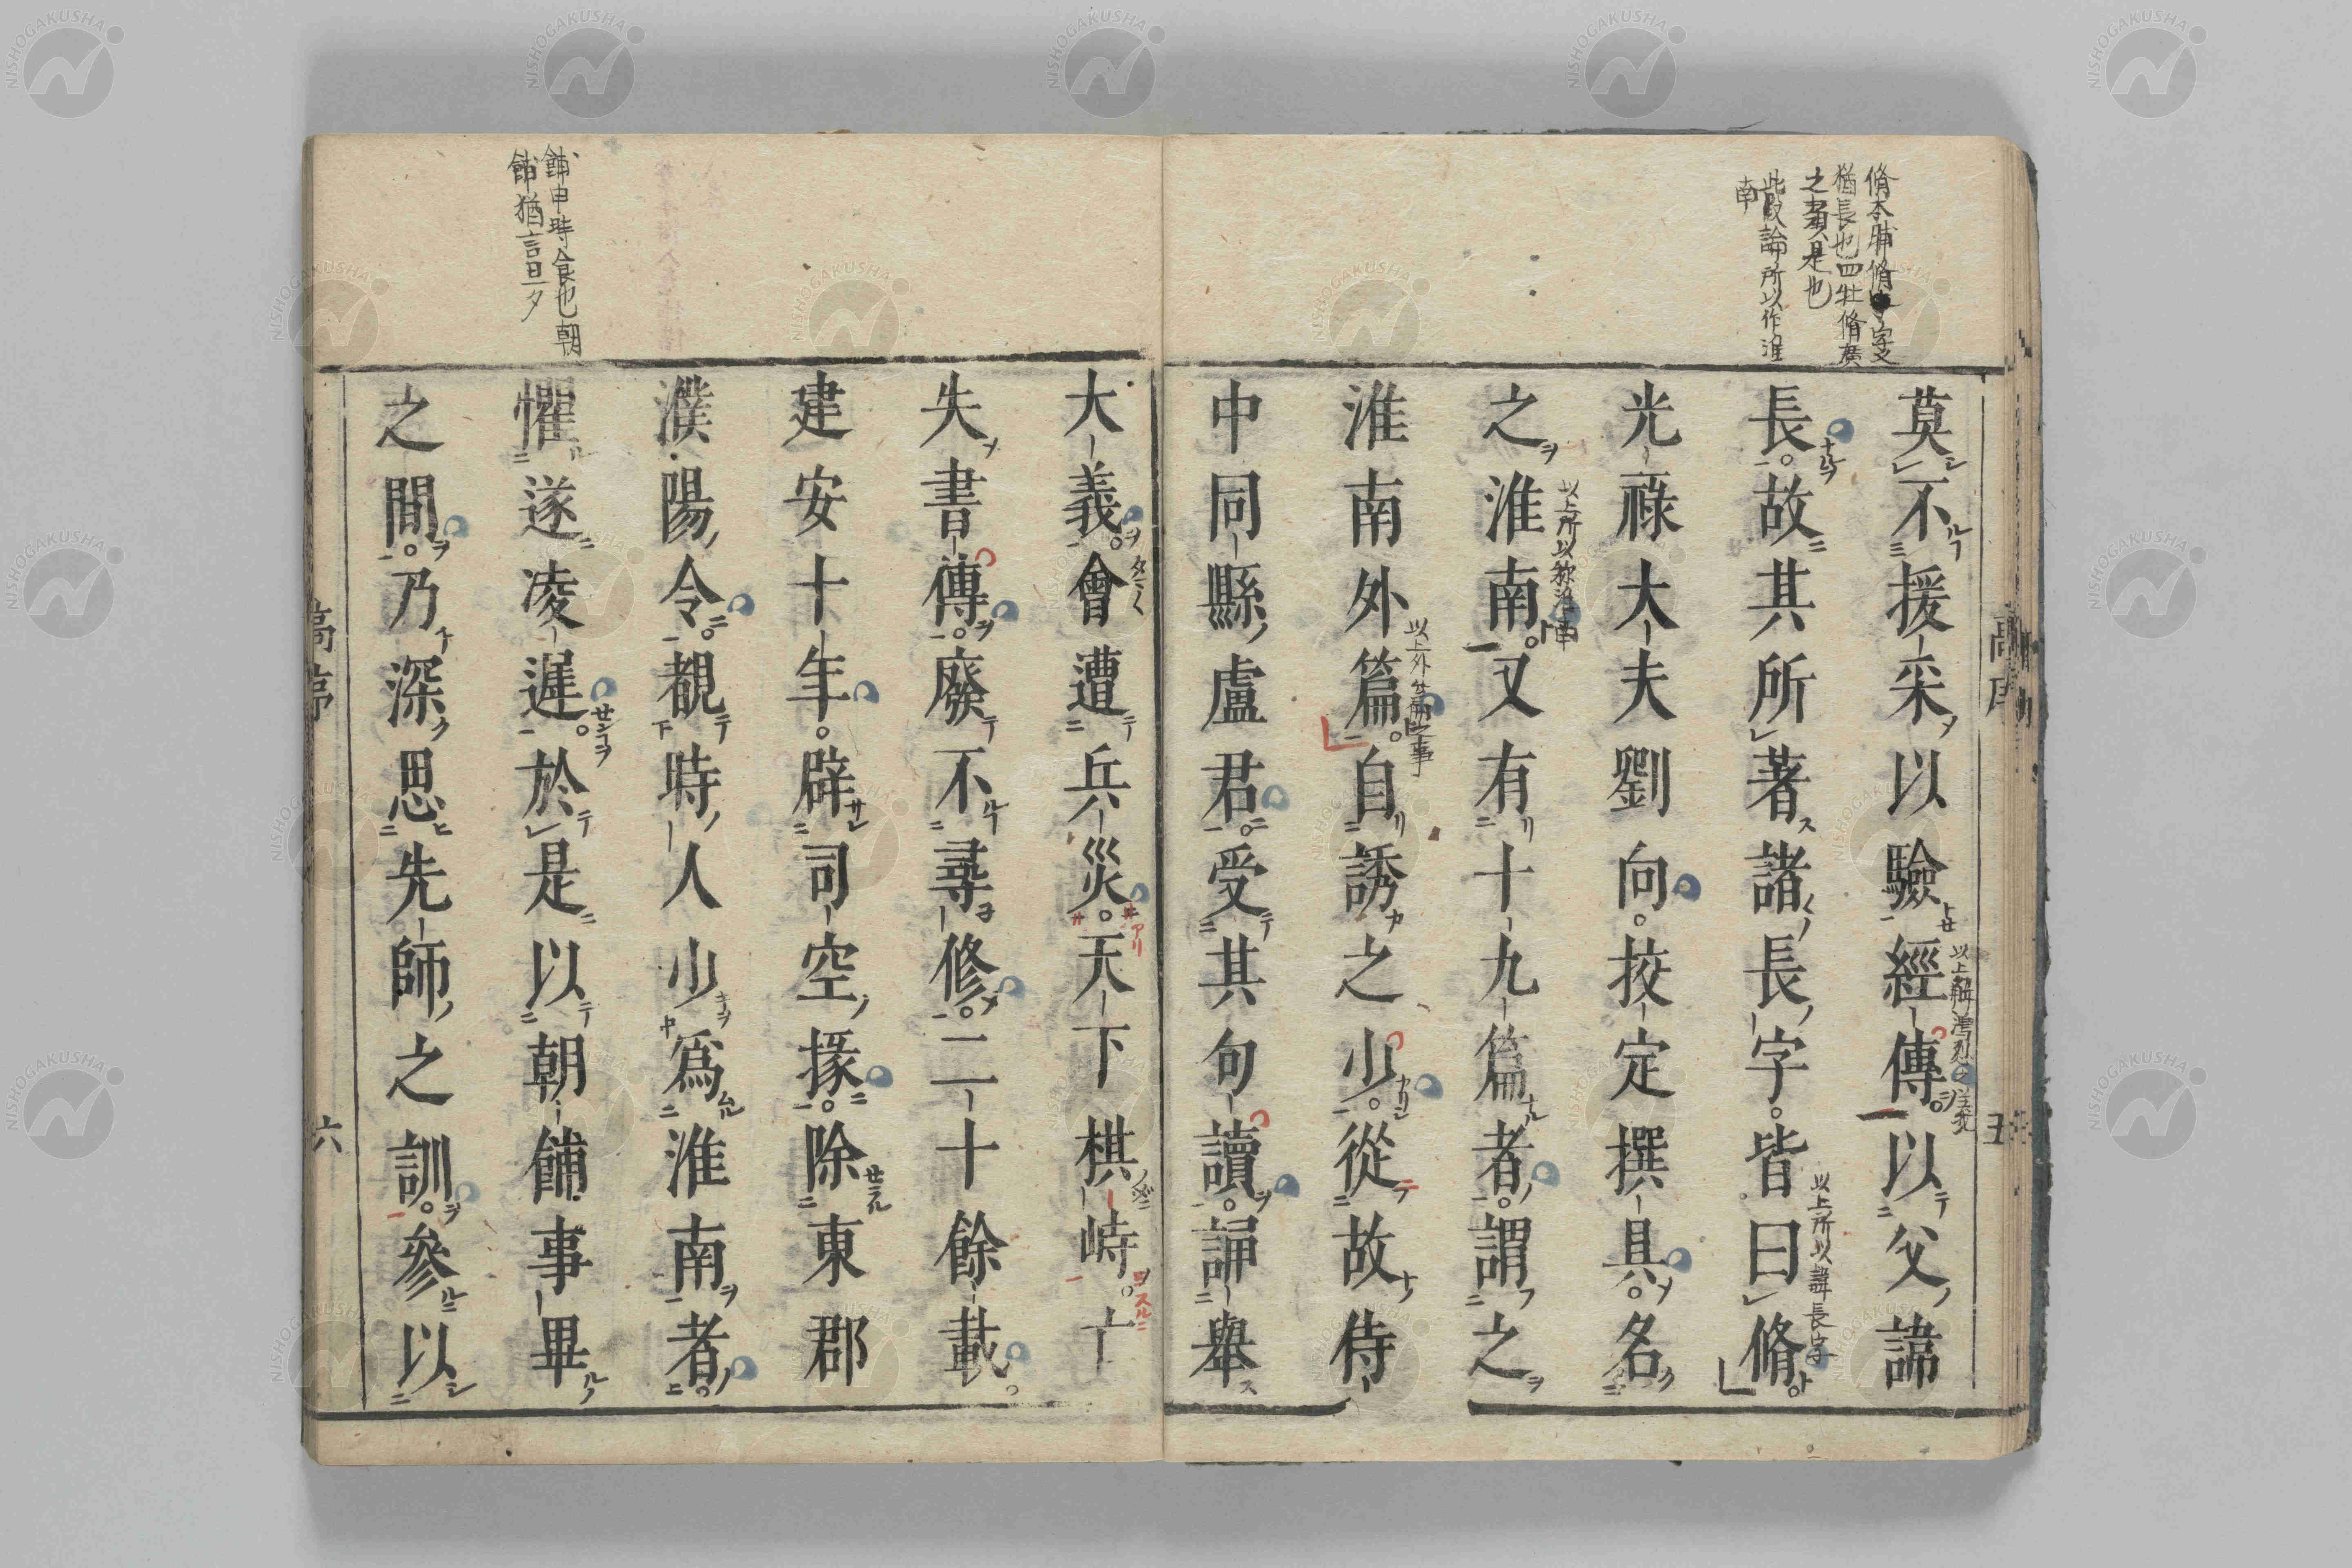 脩本脯脩
猶長也四牡脩廣
之類是也
此段論所以作淮
南
莫不援采以驗經傳。以父諱
長。故其所著諸長字。皆曰脩。
光祿大夫劉向。挍定撰具。名
之淮南。又有十九篇者。謂之
淮南外篇。自誘之少。從故侍
中同縣盧君。受其句讀。誦舉
以上所以諱長字
以上所以称淮南
以上外篇之事
高序
五
餔申時食也朝
餔猶言旦夕
大義。會遭兵災。天下棋峙。亡
失書傳。廢不尋修。二十餘載。
建安十年。辟司空掾。除東郡
濮陽令。覩時人少爲淮南者。
懼遂凌遲。於是以朝餔事畢
之間。乃深思先師之訓。參以
高序
六
NISHOGAKUSHA